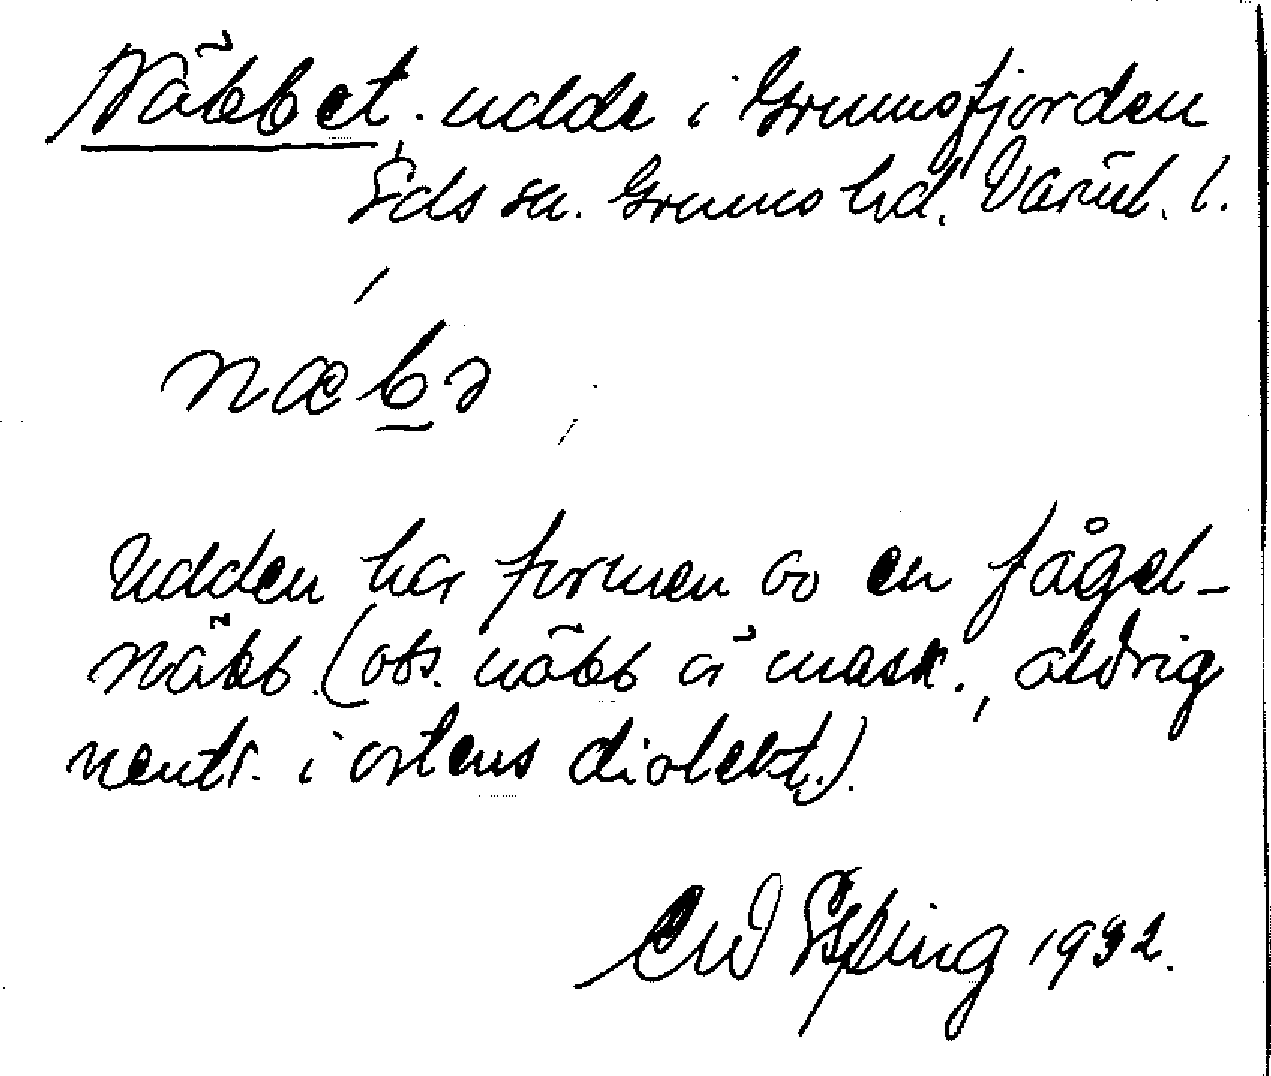 Näbbet. udde i Grumsfjorden
Eds sn. Grums hd. Värml. l.
næbə
Udden har formen av en fågel-
näbb. (obs. näbb är mask., aldrig
neutr. i ortens dialekt.).
Esping 1932.